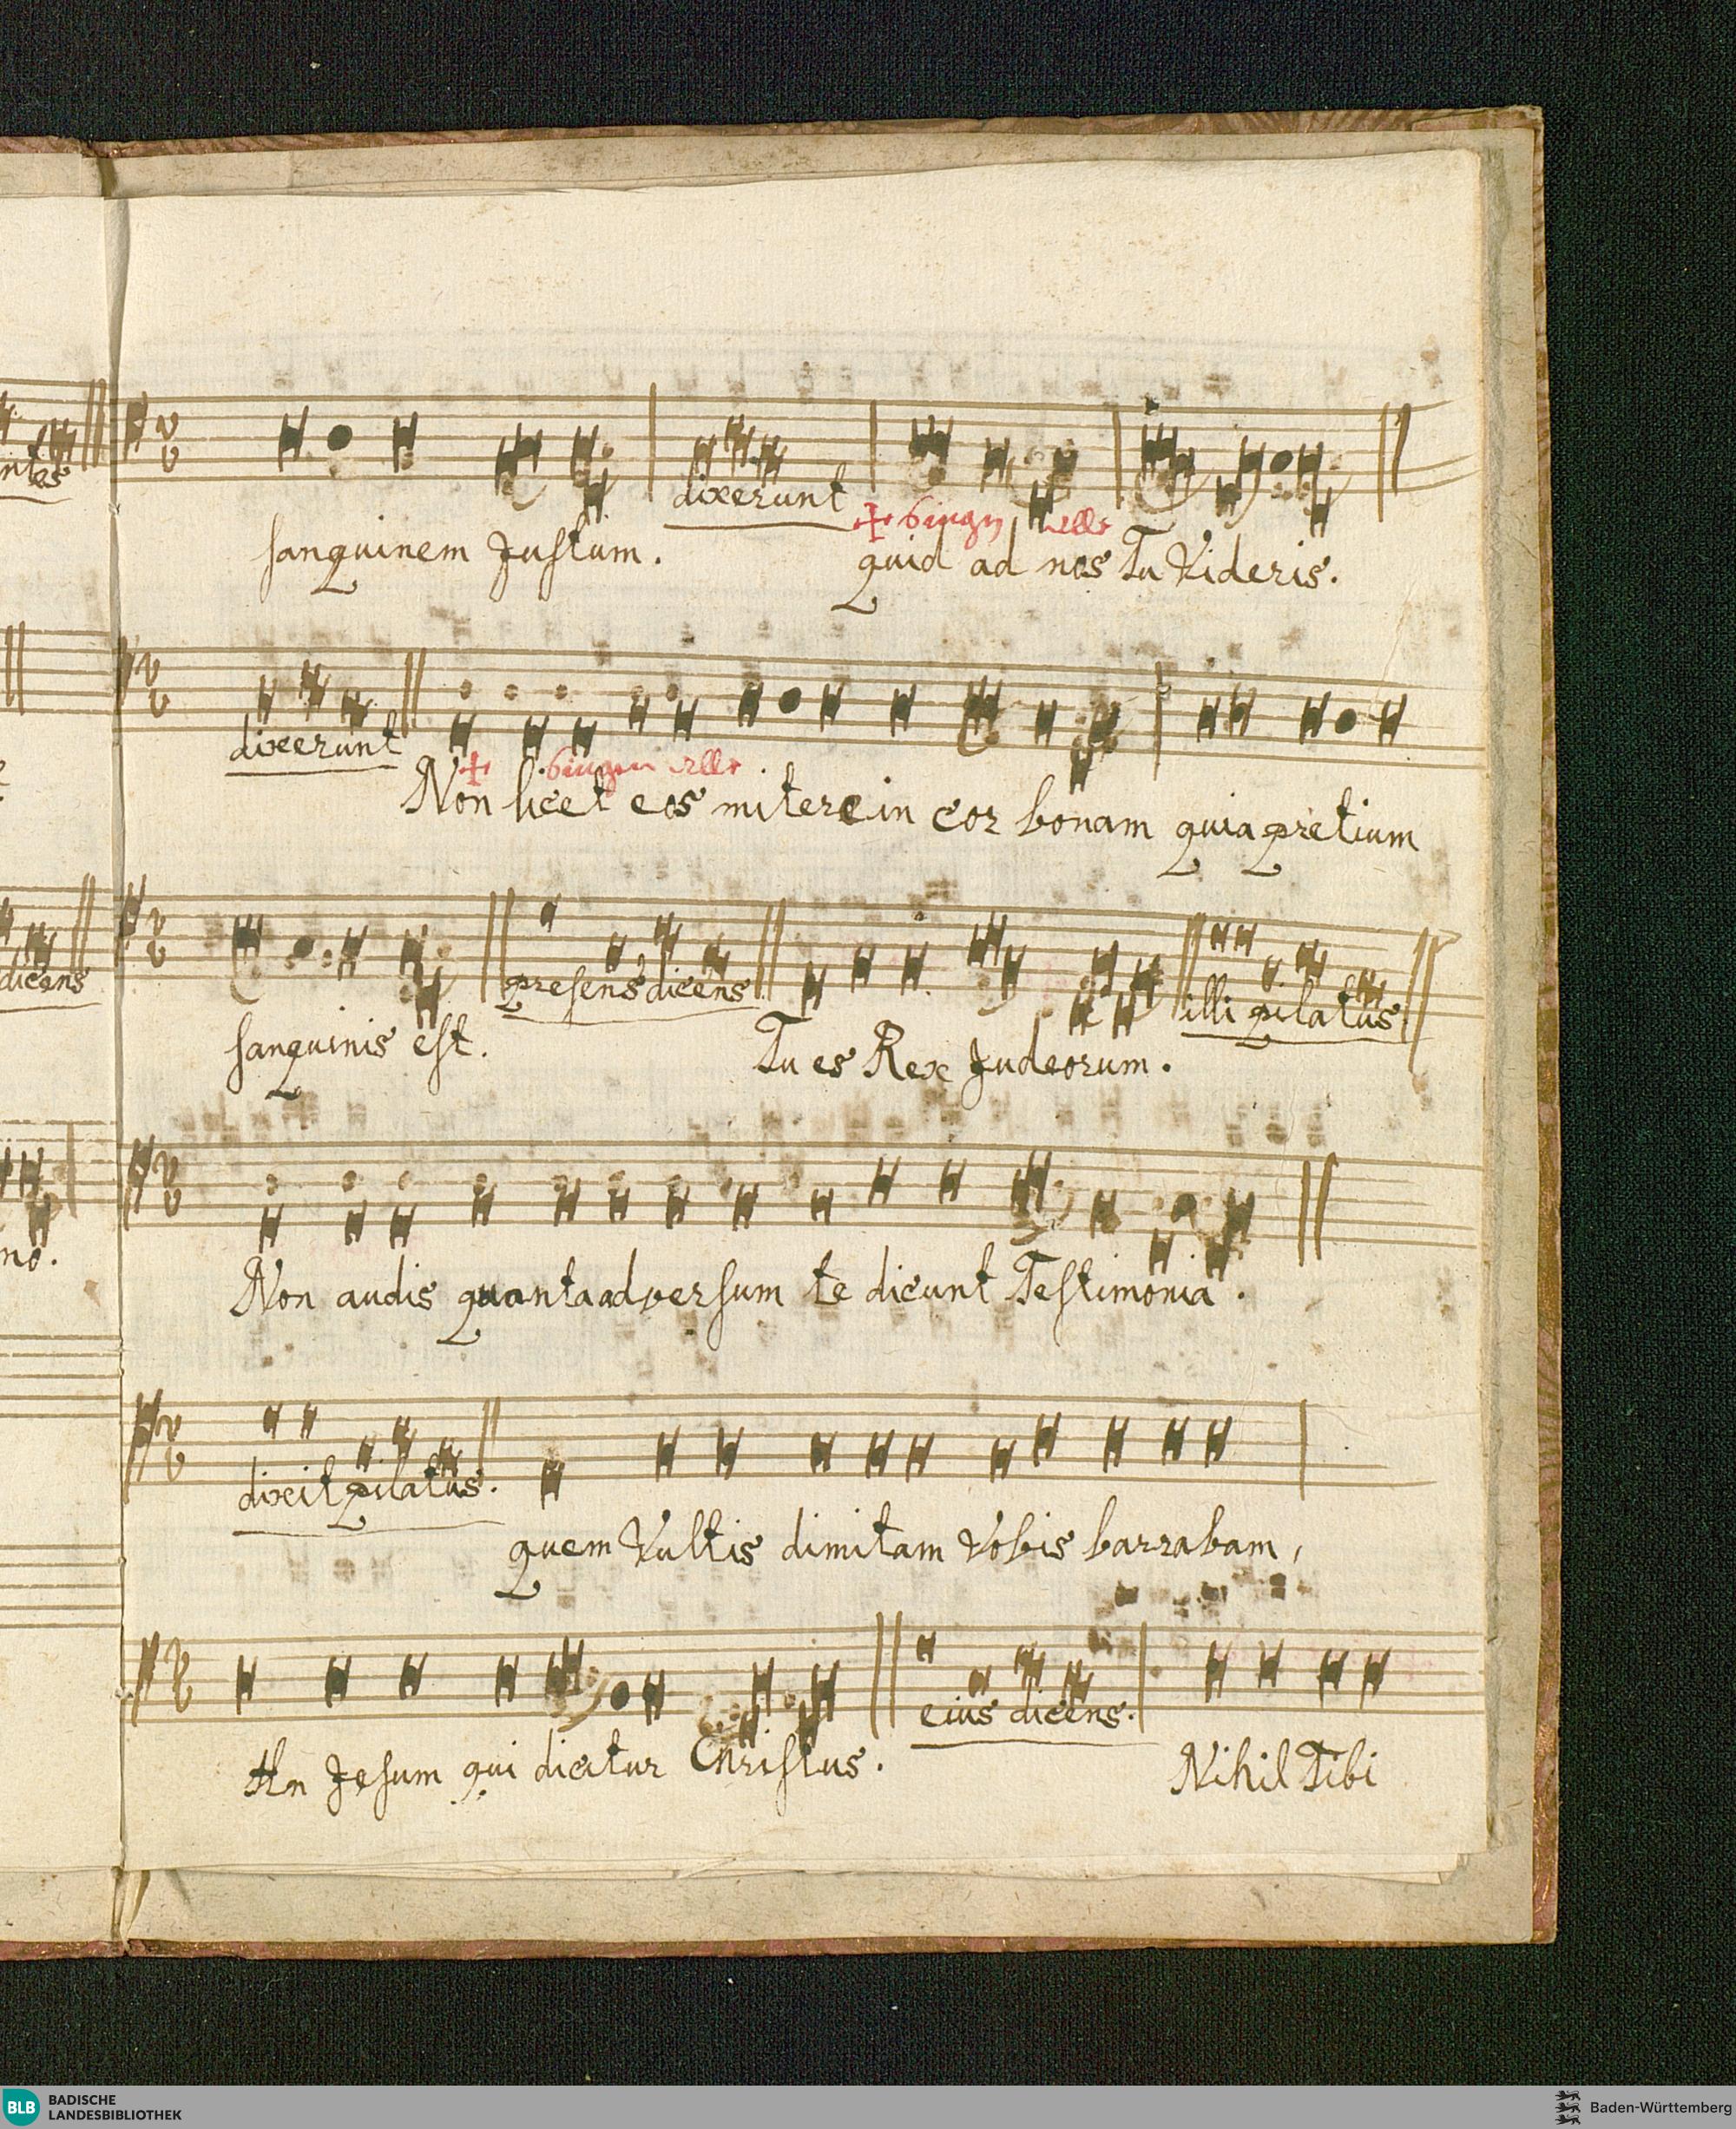 ntes
dixerunt
+ singen alle
sanguinem Justum. quid ad nos Tu Videris.
dixerunt
+ singen alle
Non licet eos mitere in cor bonam quia pretium
dicens
presens dicens illi pilatus.
sanguinis est. Tu es Rex Judeorum.
no.
Non audis quanta adversum te dicunt Testimonia.
dixit pilatus.
quem Vultis dimitam Vobis barrabam,
eius dicens.
An Jesum qui dicitur Christus. Nihil Tibi
BLB BADISCHE
LANDESBIBLIOTHEK
Baden-Württemberg